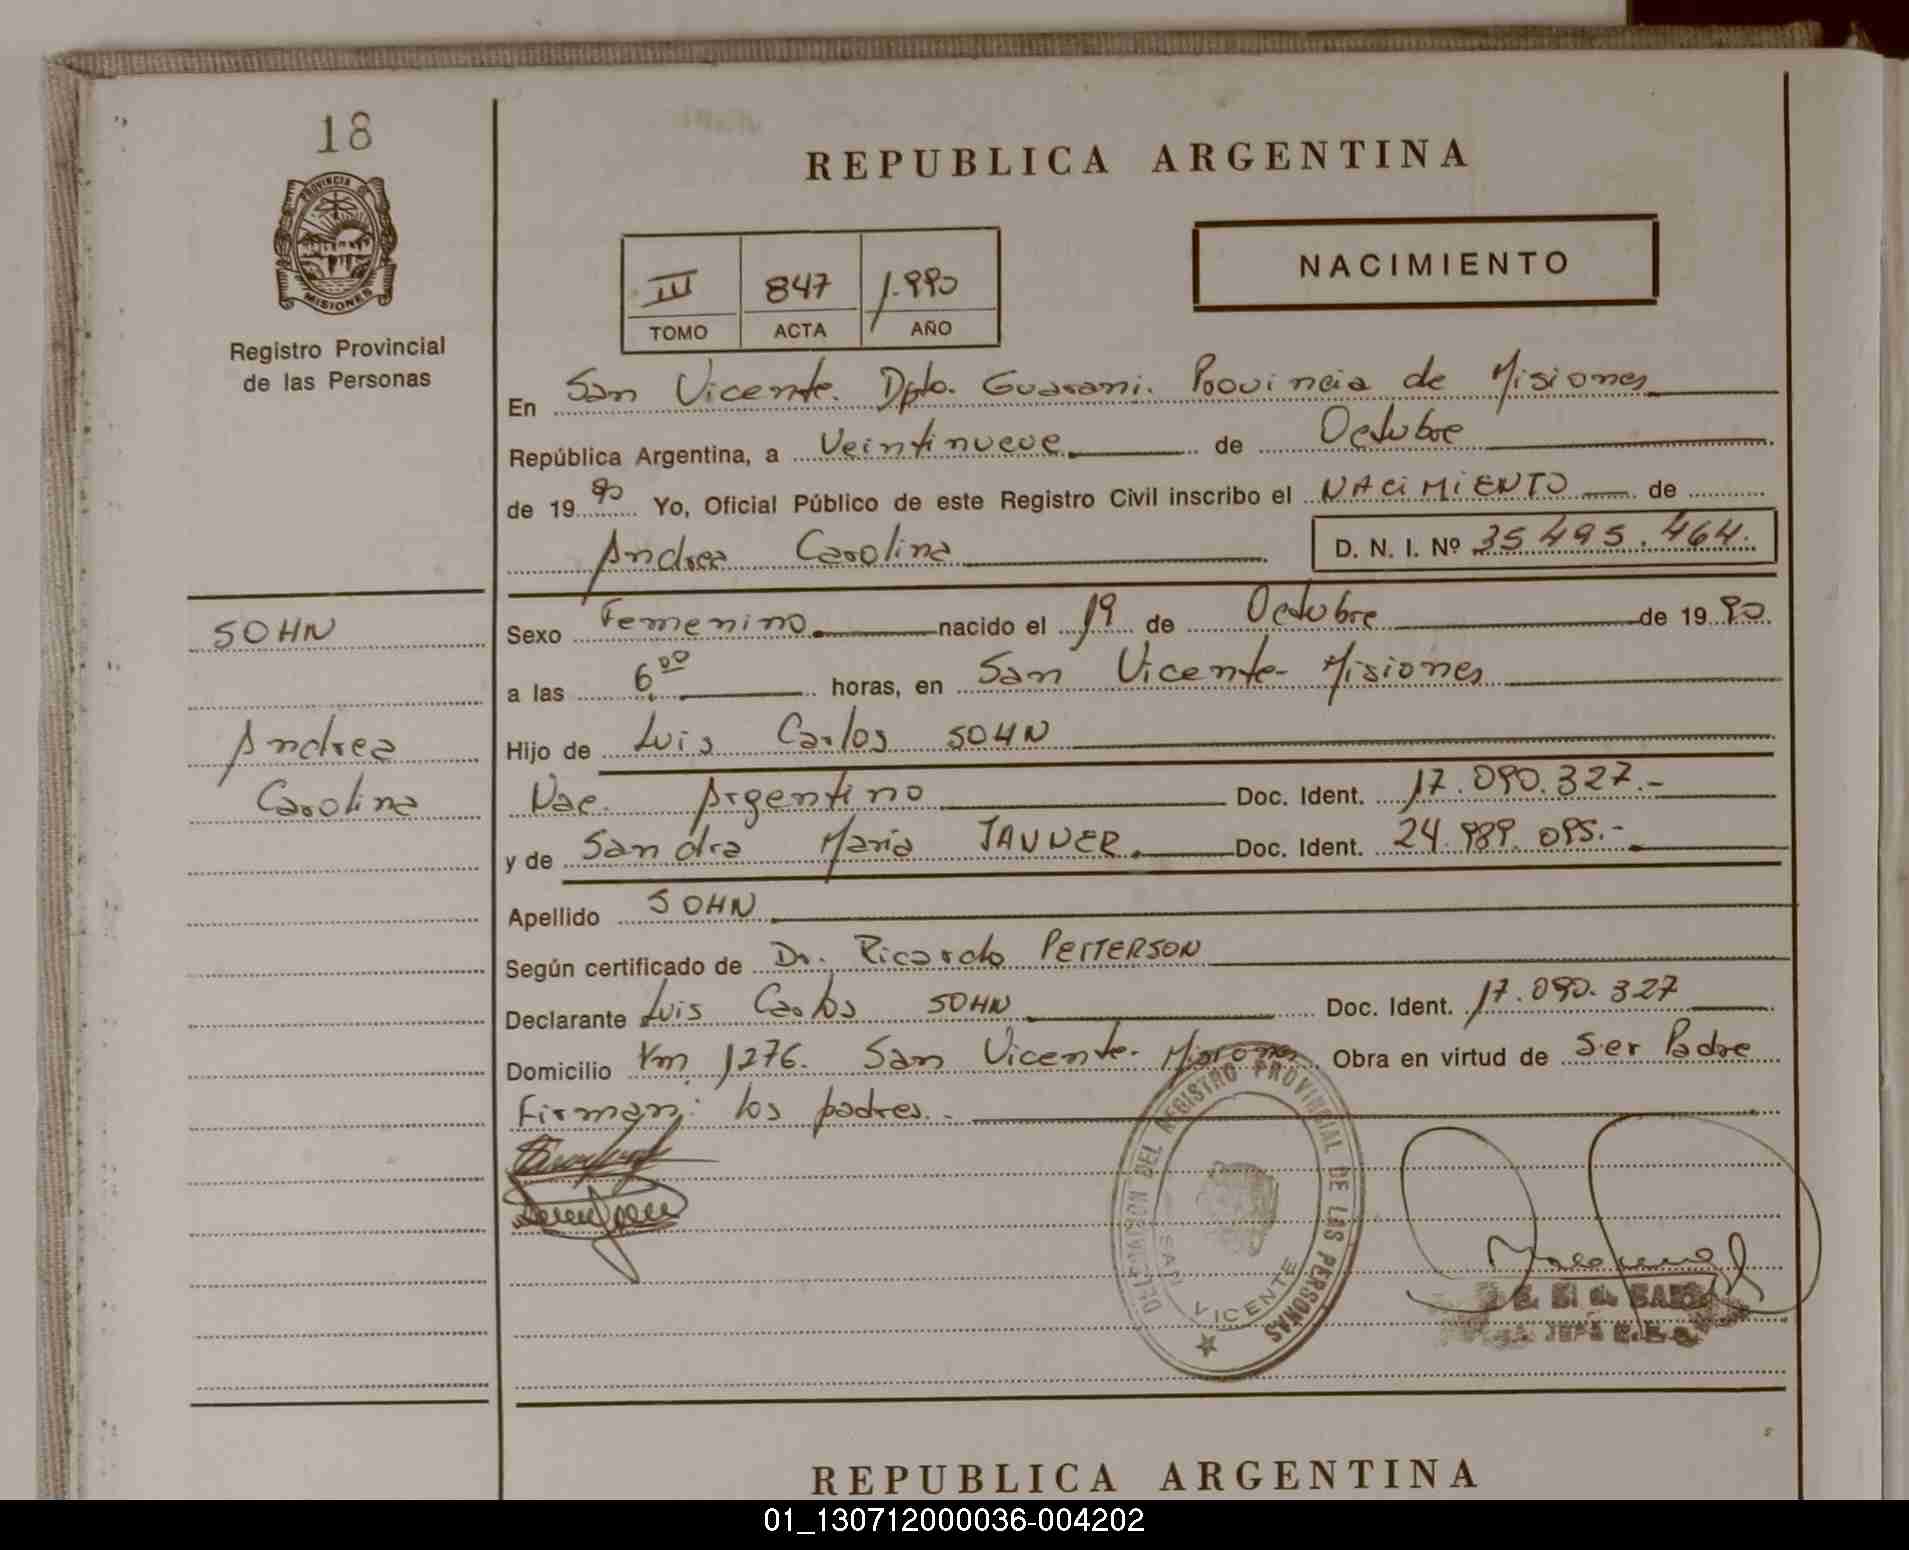 18
PROVINCIA DE
MISIONES
Registro Provincial
de las Personas
REPUBLICA ARGENTINA
III 847 1.990
TOMO ACTA AÑO
NACIMIENTO
En San Vicente. Dpto. Guarani. Provincia de Misiones
República Argentina, a Veintinueve de Octubre
de 1990 Yo, Oficial Público de este Registro Civil inscribo el NACIMIENTO de
Andrea Carolina D. N. I. Nº 35 495.464.
SOHN
Andrea
Carolina
Sexo Femenino nacido el 19 de Octubre de 1990
a las 6.00 horas, en San Vicente- Misiones
Hijo de Luis Carlos SOHN
Nac. Argentino Doc. Ident. 17.090.327.-
y de Sandra Maria TANNER. Doc. Ident. 24.989.095.-
Apellido SOHN
Según certificado de Dr. Ricardo PEITERSON
Declarante Luis Carlos SOHN Doc. Ident. 17.090.327
Domicilio Km 1276. San Vicente- Misiones Obra en virtud de Ser Padre
Firman: los padres.-
DELEGACION DEL REGISTRO PROVINCIAL DE LAS PERSONAS
SAN VICENTE
REPUBLICA ARGENTINA
01_130712000036-004202